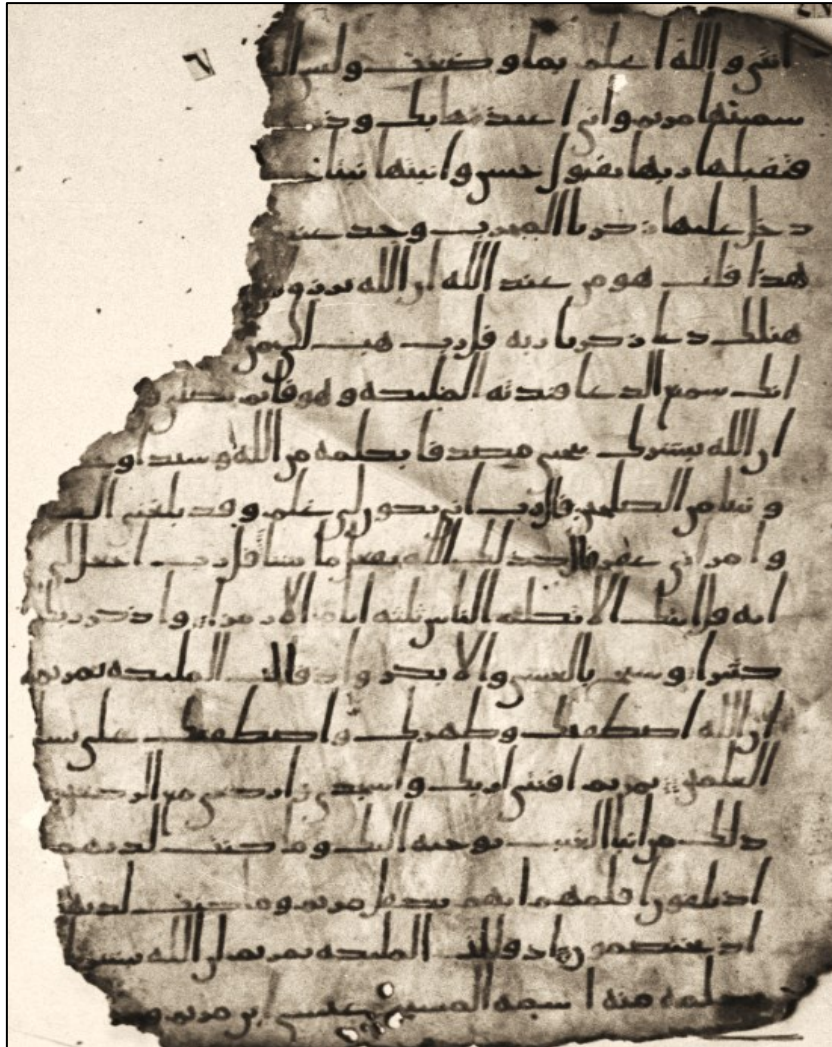 انثى والله اعلم بما وضعت وليس ال
سميتها مريم واني اعيذها بك وذر
فتقبلها ربها بقبول حسن وانبتها نباتا
دخل عليها زكريا المحرب وجد عند
هذا قلت هو من عند الله ان الله يرزق من
هنلك دعا زكريا ربه قل رب هب لي من
انك سميع الدعا فندته الملئكة وهو قائم يصلي
ان الله يبشرك بيحيى مصدقا بكلمة من الله وسيدا و
ونبيا من الصلحين قال رب انى يكون لي غلم وقد بلغني الك
وامراتي عقر قال كذلك الله يفعل ما يشا قل رب اجعل لي
اية قل ايتك الا تكلم الناس ثلثة ايام الا رمزا واذكر ربك
كثيرا وسبح بالعشي والابكر واذ قالت الملئكة يمريم
ان الله اصطفيك وطهرك واصطفيك على نسا
العلمين يمريم اقنتي لربك واسجدي واركعي مع الركعين
ذلك من انبا الغيب نوحيه اليك وما كنت لديهم
اذ يلقون اقلمهم ايهم يكفل مريم وما كنت لديهم
اذ يختصمون اذ قالت الملئكة يمريم ان الله يبشرك
بكلمة منه اسمه المسيح عيسى ابن مريم